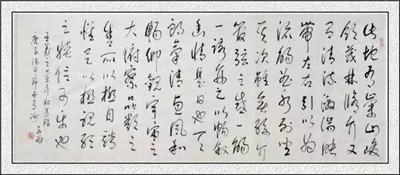 此地有崇山峻
領茂林脩竹又
有清流激湍暎
帶左右引以為
流觴曲水列坐
其次雖無絲竹
管弦之盛一觴
一詠亦足以暢叙
幽情是日也天
朗氣清惠風和
暢仰觀宇宙之
大俯察品類之
盛所以遊目騁
懷足以極視聽
之娛信可樂也
王羲之蘭亭序
庚子